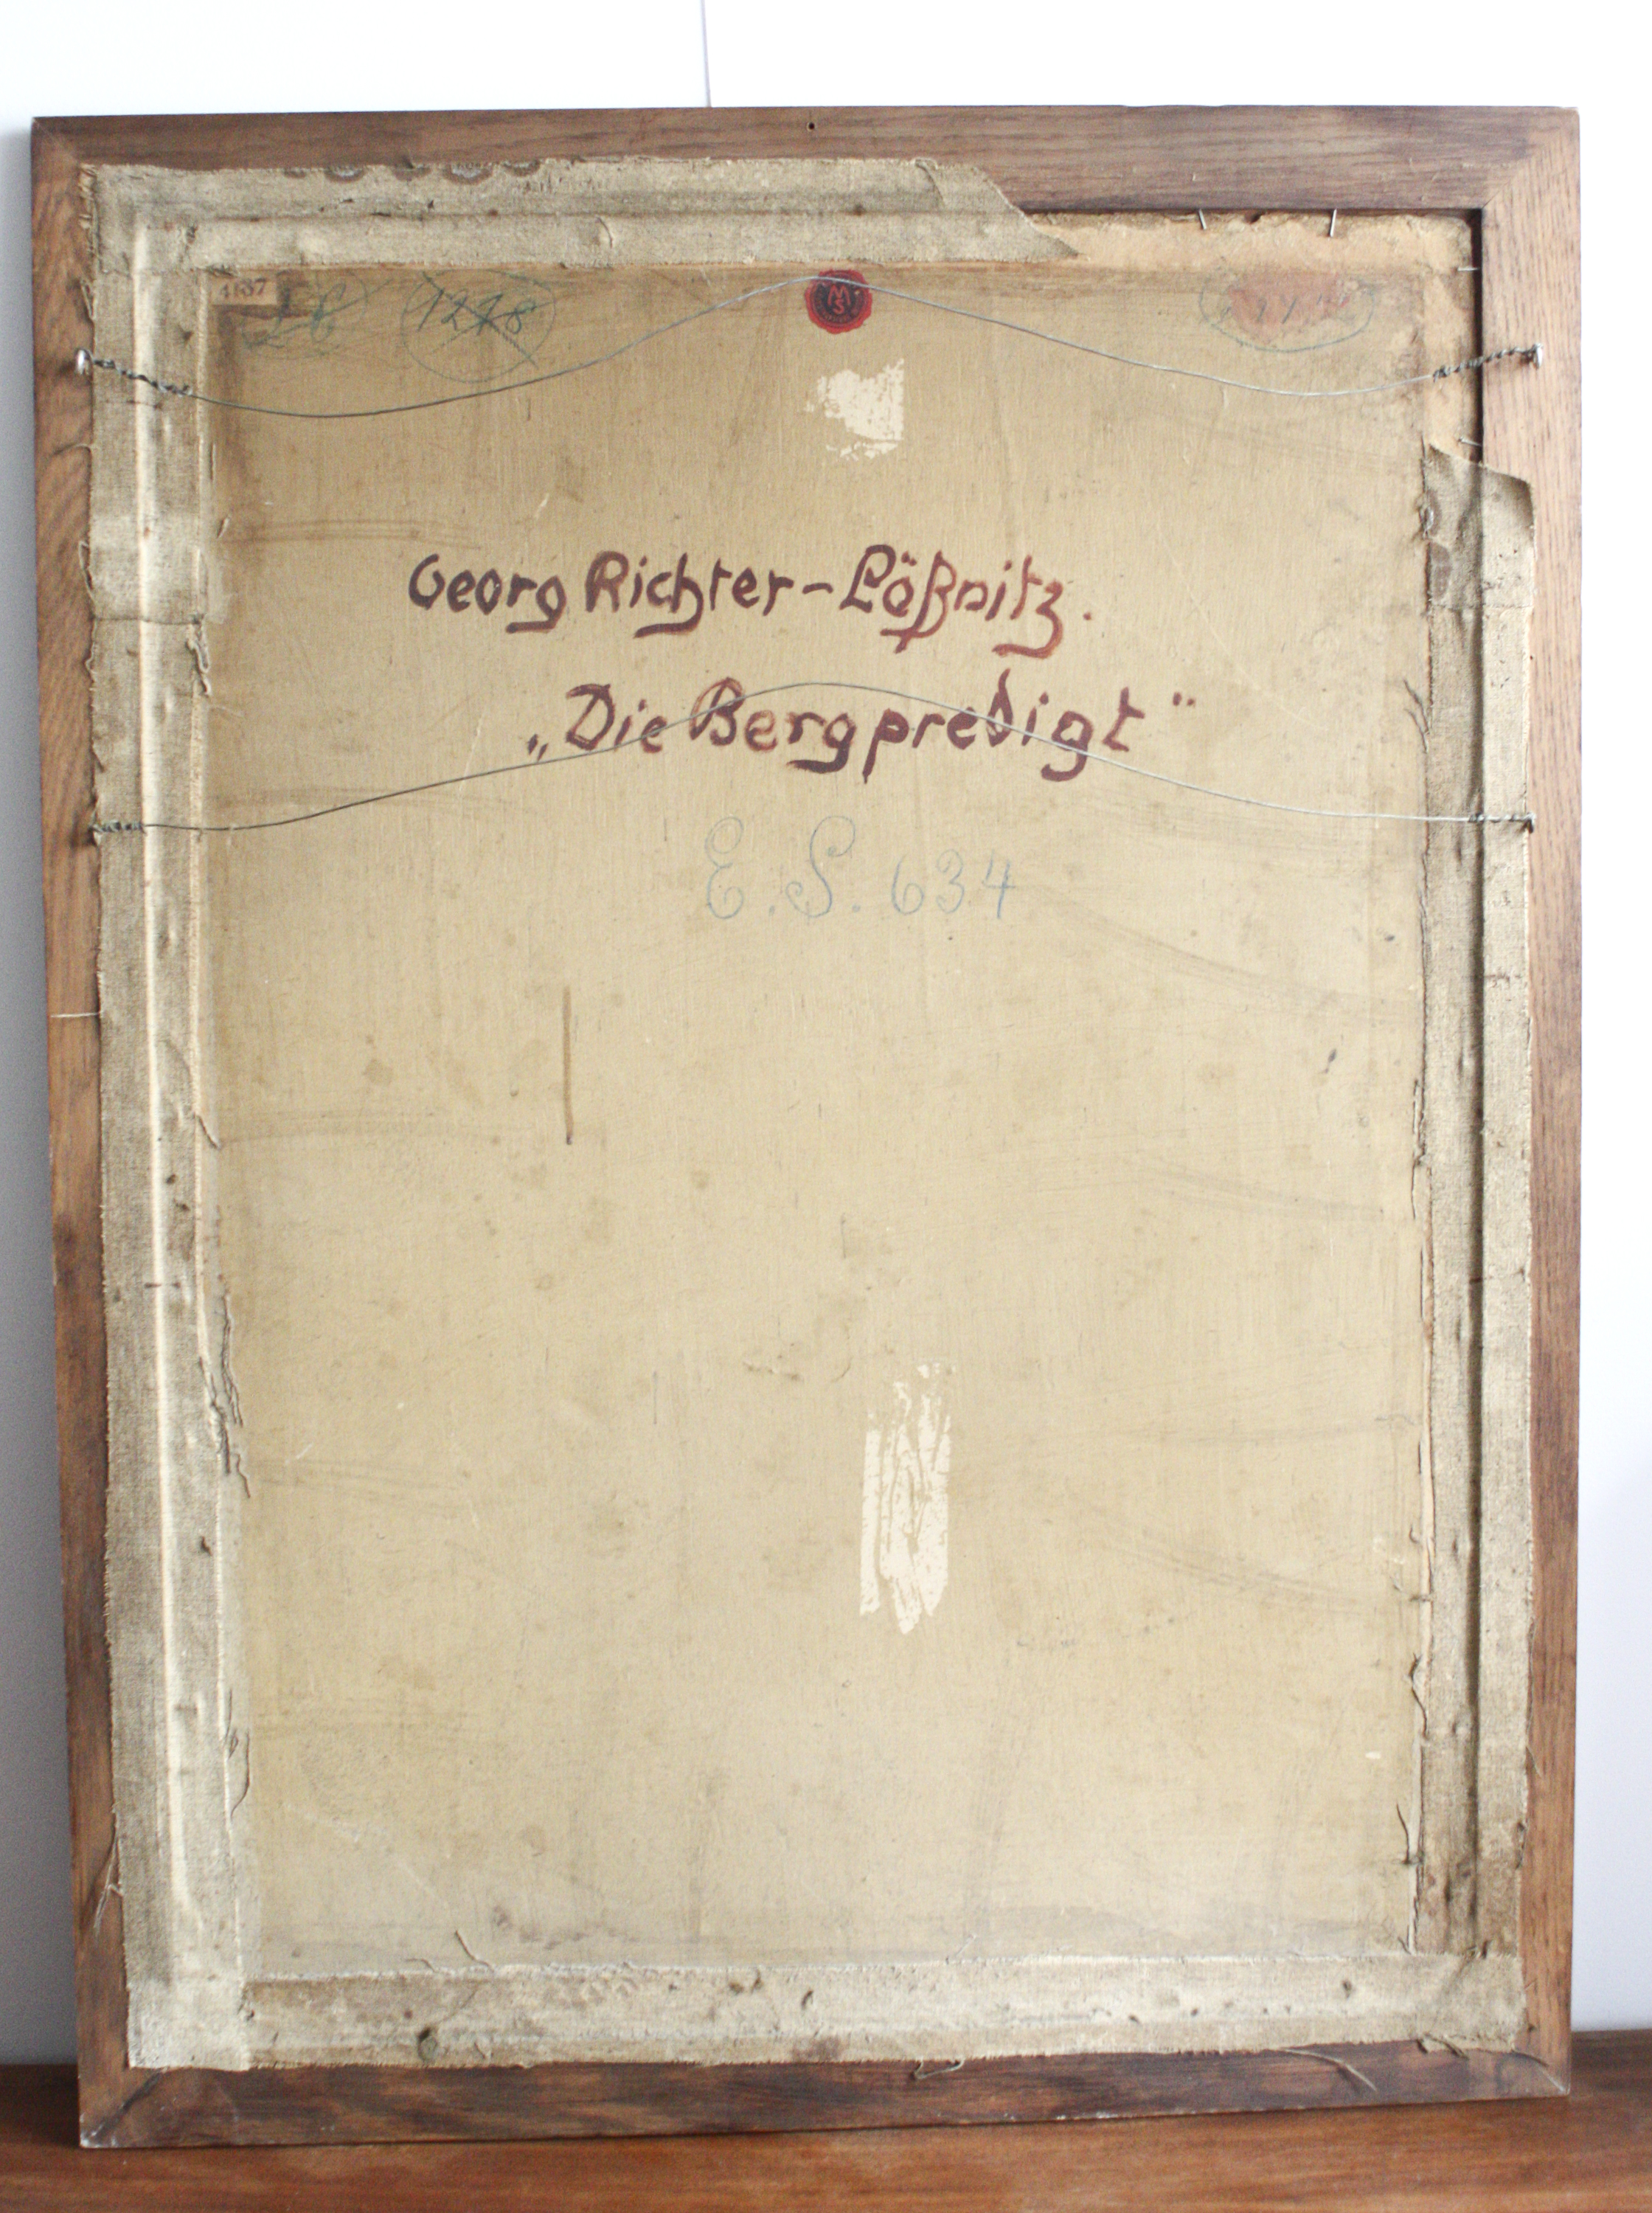 1218
Georg Richter-Lößnitz.
„Die Bergpredigt"
E. S. 634